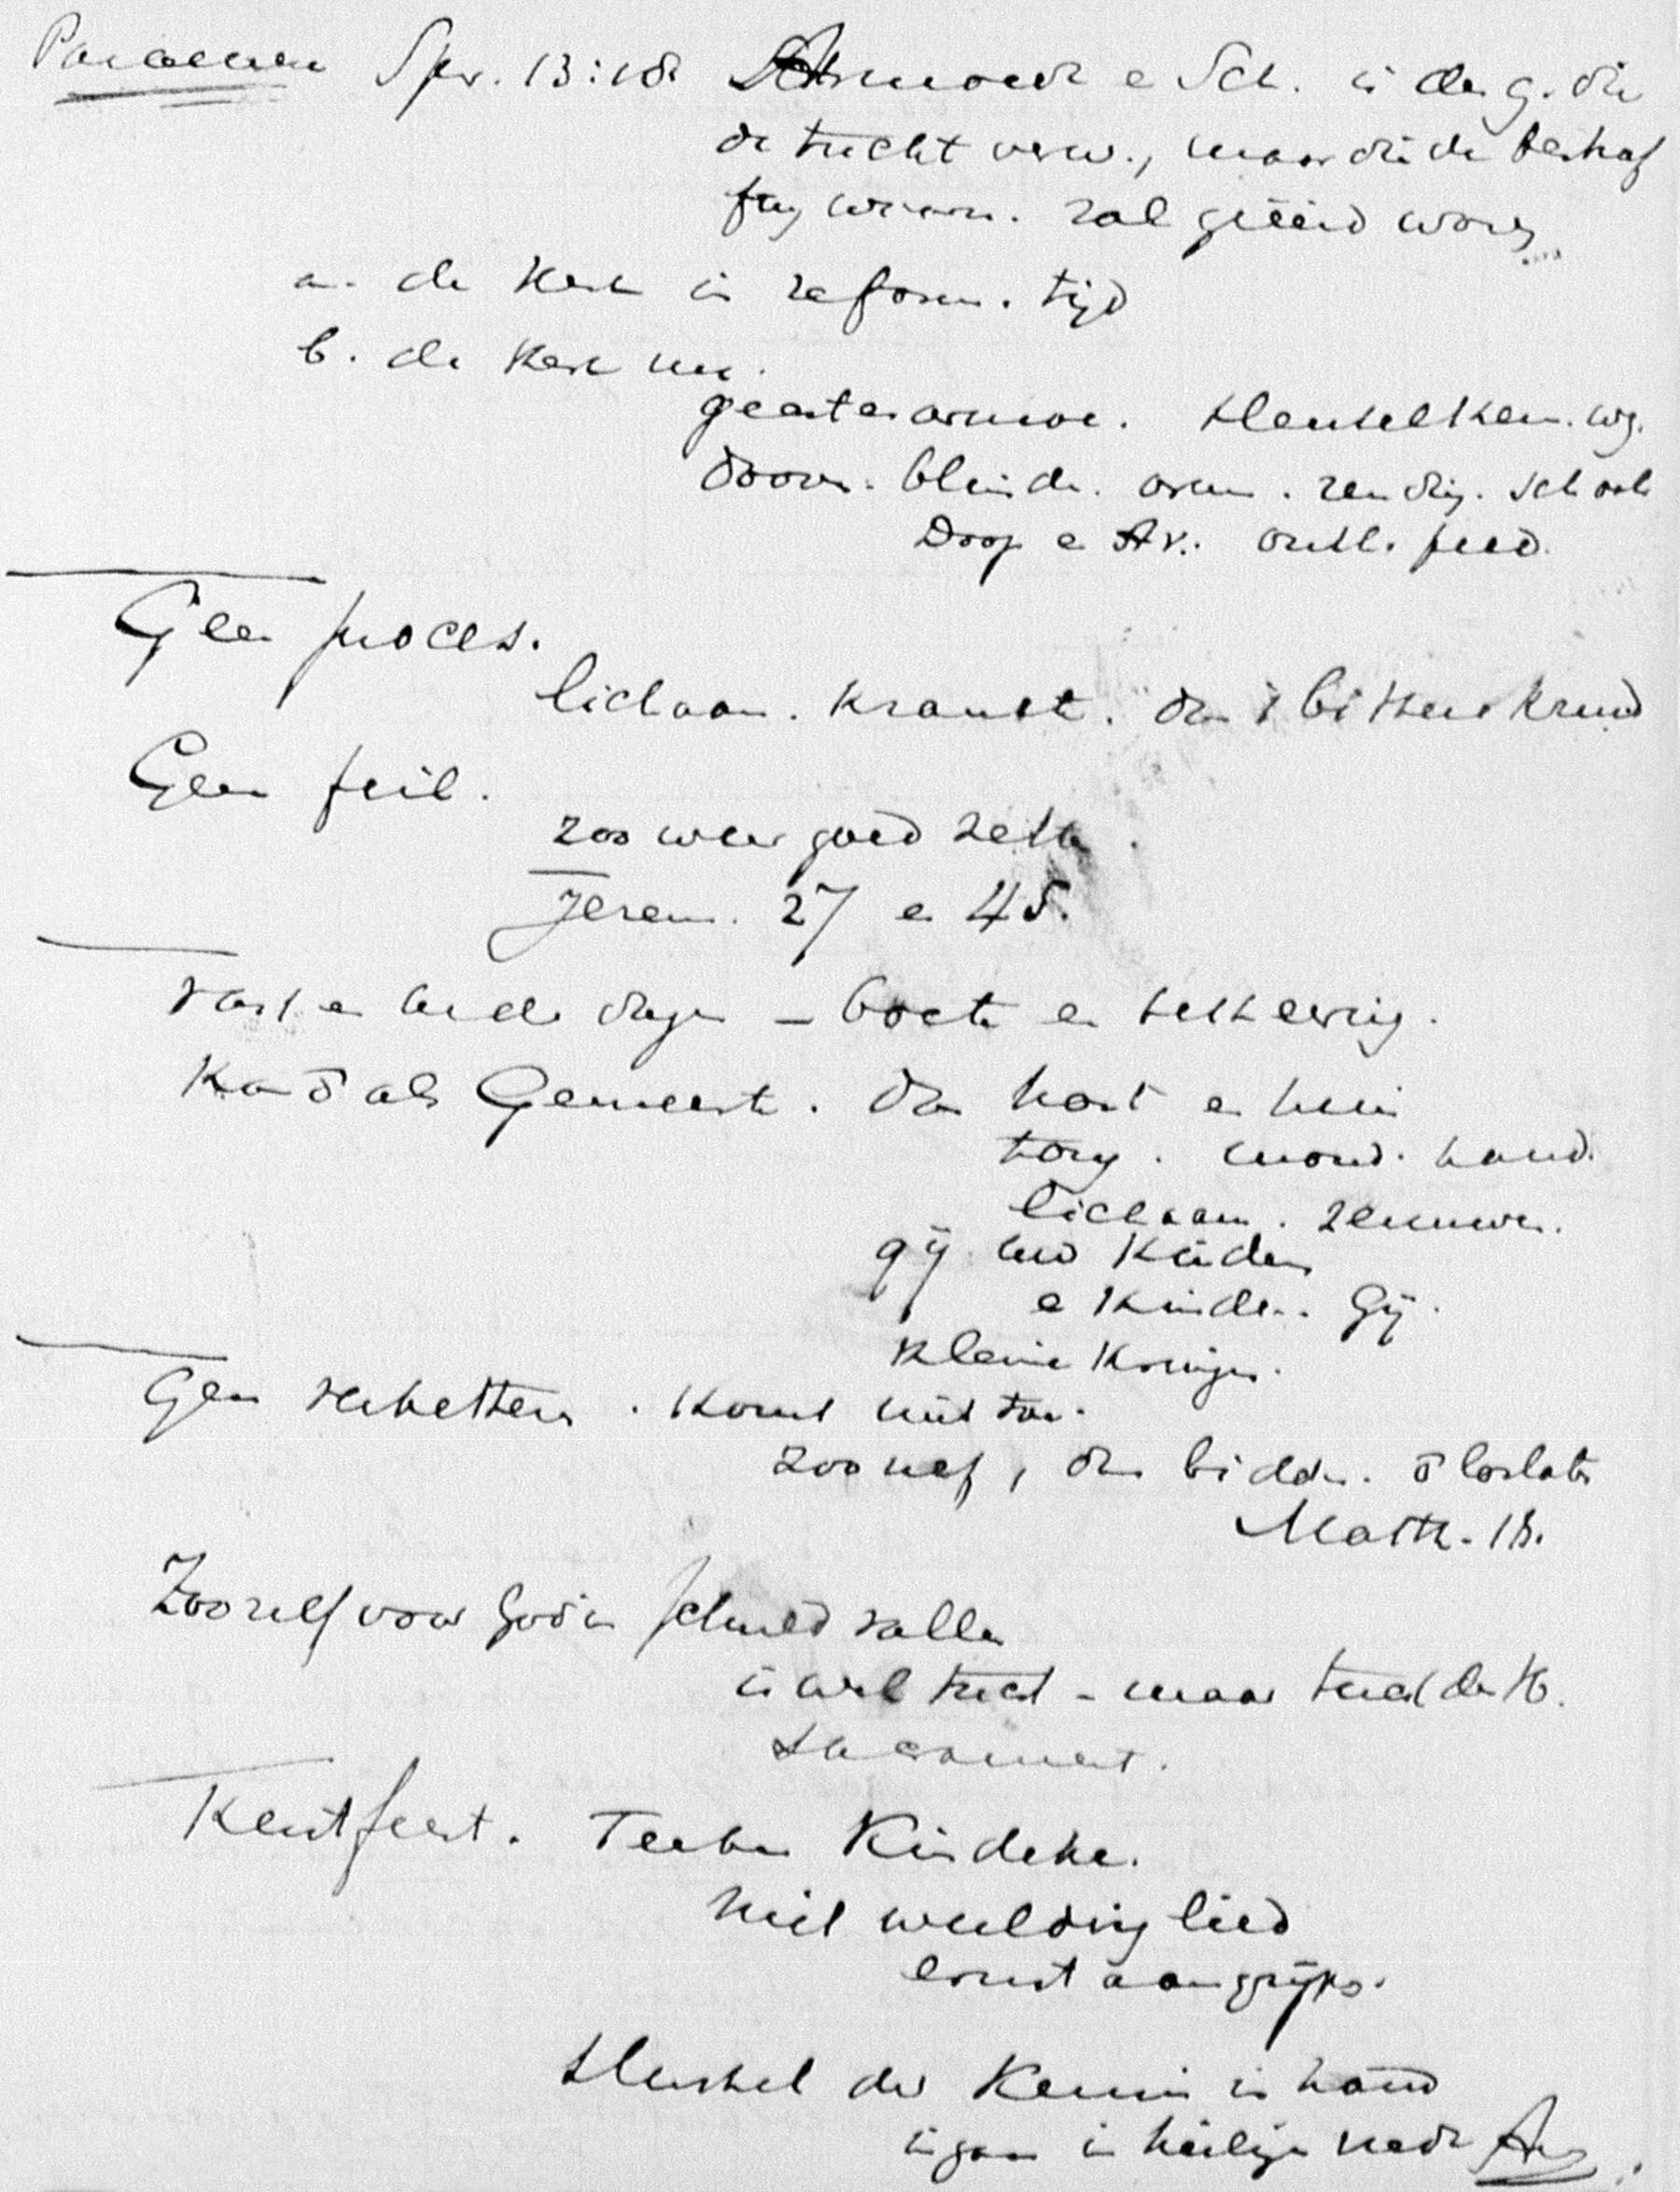 Paraenese Spr. 13:18. Armoede e Sch. is den g. die
de tucht verw., maar die de bestraf
fing waarn. zal geëerd word
a. de Kerk in reform. tijd
b. de Kerk nu.
geestesarmoe. sleutelken. wg.
doove. blinde. arm. zending. school
Doop e Av. ouderl. pred.
Geen proces.
lichaam. krankt. dan bitter kruid
Geen feil.
zoo weer goed zette.
Jerem. 27 e 45.
Vast e bede dagen – boete e bekeering.
Kan als Gemeente. Dan hart e huis
tong. mond. hand.
lichaam. zenuwen.
gij uw Kinderen
e Kinder. Gij.
Kleine Kringen.
Geen verbetten. Komt niet toe.
zoo nef, dan bidden. loslate
Matth. 18.
Zoo zelf voor God in schuld valle
is wel tucht – maar tucht de H.
sacrament.
Kerstfeest. Teeken Kindeke.
niet weelderig lied
ernst aangrijp.
Sleutel der Kennis in hand
ingaan in heilige nacht A.